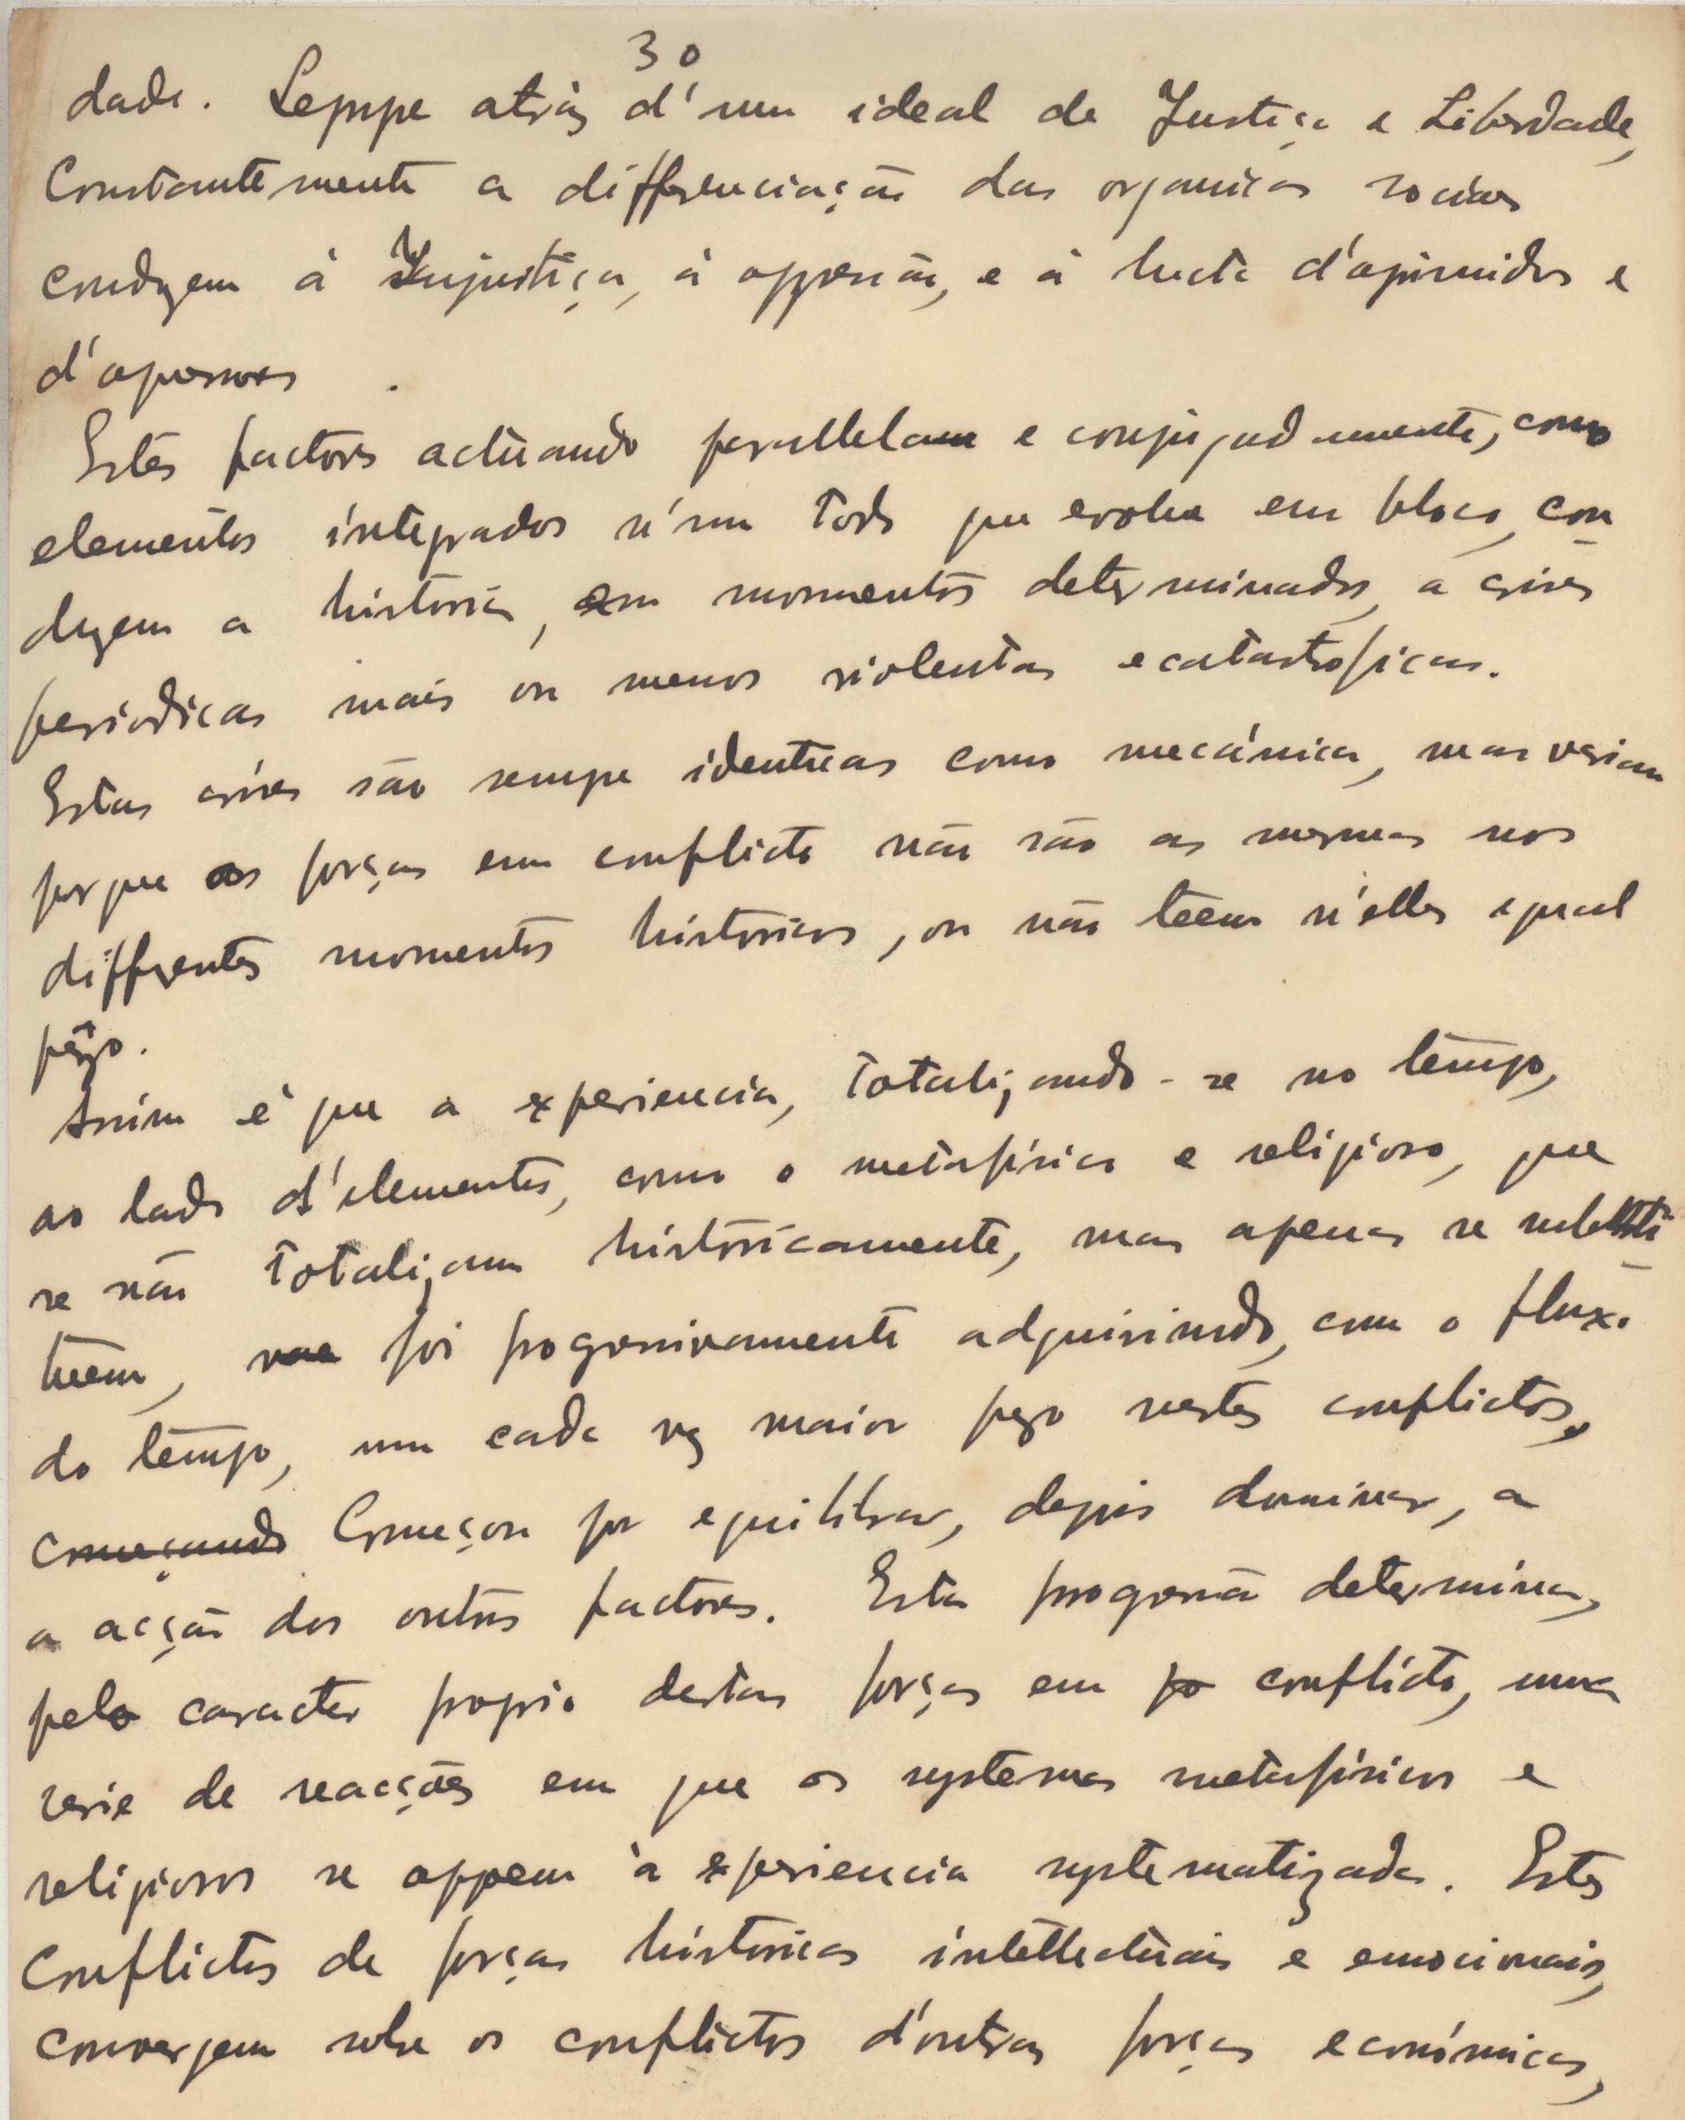 30
dade. Sempre atrás d'um ideal de Justiça e Liberdade,
Constantemente a differenciação das organicas sociaes
conduzem á Injustiça, á oppressão, e á lucta d'oprimidos e
d'opressores.
Estes factores actuando parallelam e conjugadamente, como
elementos integrados n'um todo que evolue em bloco, con
duzem a historia, em momentos determinados, a crises
periodicas mais ou menos violentas e catastroficas.
Estas crises são sempre identicas como mecánica, mas variam
porque as forças em conflicto não são as mesmas nos
differentes momentos historicos, ou não teem n'elles egual
pêzo.
Assim é que a experiencia, totalizando-se no tempo,
ao lado d'elementos, como o metafísico e religioso, que
se não totalizam historicamente, mas apenas se substi-
tuem, foi progressivamente adquirindo, com o fluxo
do tempo, um cada vez maior pezo nestes conflictos,
começando Começou por equilibrar, depois dominar, a
a acção dos outros factores. Esta progressão determina,
pelo caracter proprio destas forças em conflicto, uma
serie de reacções em que os systemas metafísicos e
religiosos se oppoem á experiencia systematizada. Estes
Conflictos de forças historicas intellectuais e emocionais,
convergem sobre os conflictos d'outras forças económicas,